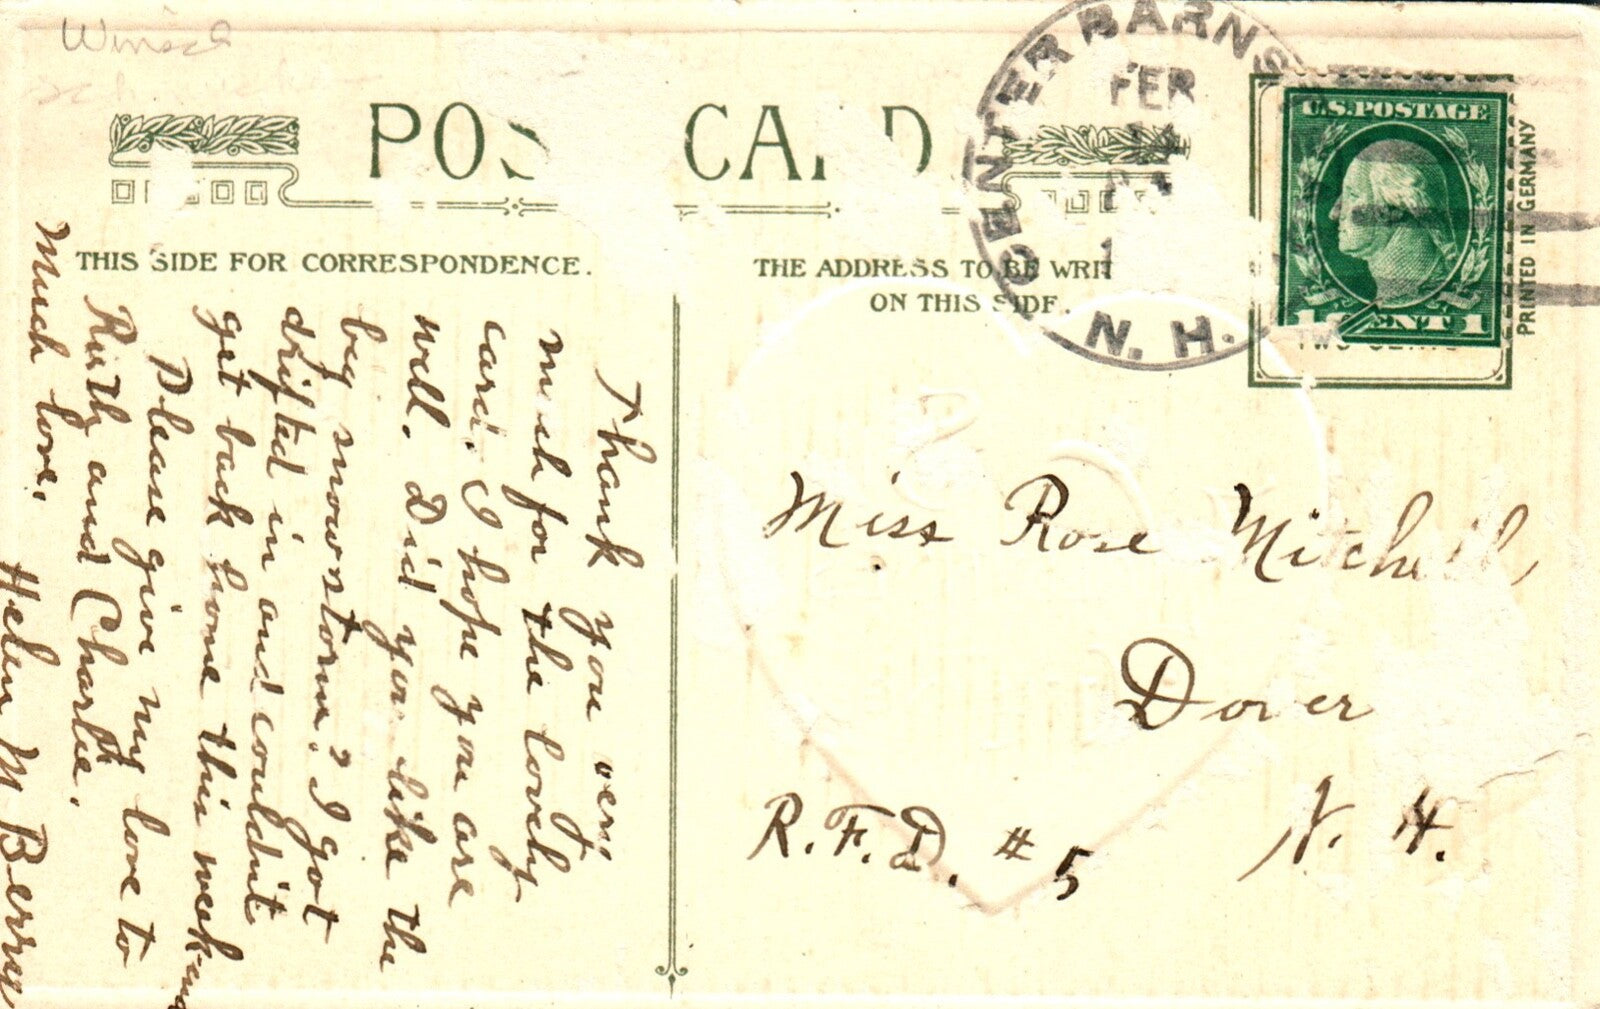 Winsch
POS CA D
THIS SIDE FOR CORRESPONDENCE.
THE ADDRESS TO BE WRIT
ON THIS SIDE.
CENTER BARNS
FEB
N. H.
U.S. POSTAGE
1 CENT 1
TWO CENTS
PRINTED IN GERMANY
Thank you very
much for the lovely
card. I hope you are
well. Did you like the
big snowstorm? I got
drifted in and couldn't
get back home this week-end
Please give my love to
Ruth and Charlie.
Much love,
Helen M Berry
Miss Rose Mitchell,
Dover
N. H.
R. F. D. # 5